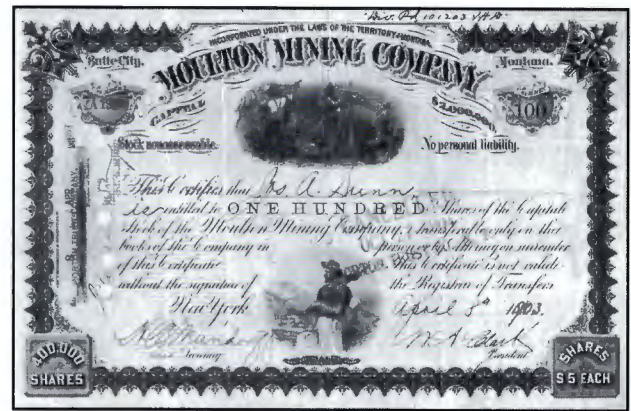 Div. Pd 101203
INCORPORATED UNDER THE LAWS OF THE TERRITORY OF MONTANA.
Butte City. Montana.
MOULTON MINING COMPANY
CAPITAL $2,000,000.
100
Stock nonassessable. No personal liability.
This Certifies that Jos A. Dunn
is entitled to ONE HUNDRED Shares of the Capital
Stock of the Moulton Mining Company, transferable only on the
books of the Company in person or by Attorney on surrender
of this Certificate This Certificate is not valid
without the signature of the Registrar of Transfers
New York April 3d 1903.
Secretary W. A. Clark President
400,000 SHARES
SHARES $5 EACH